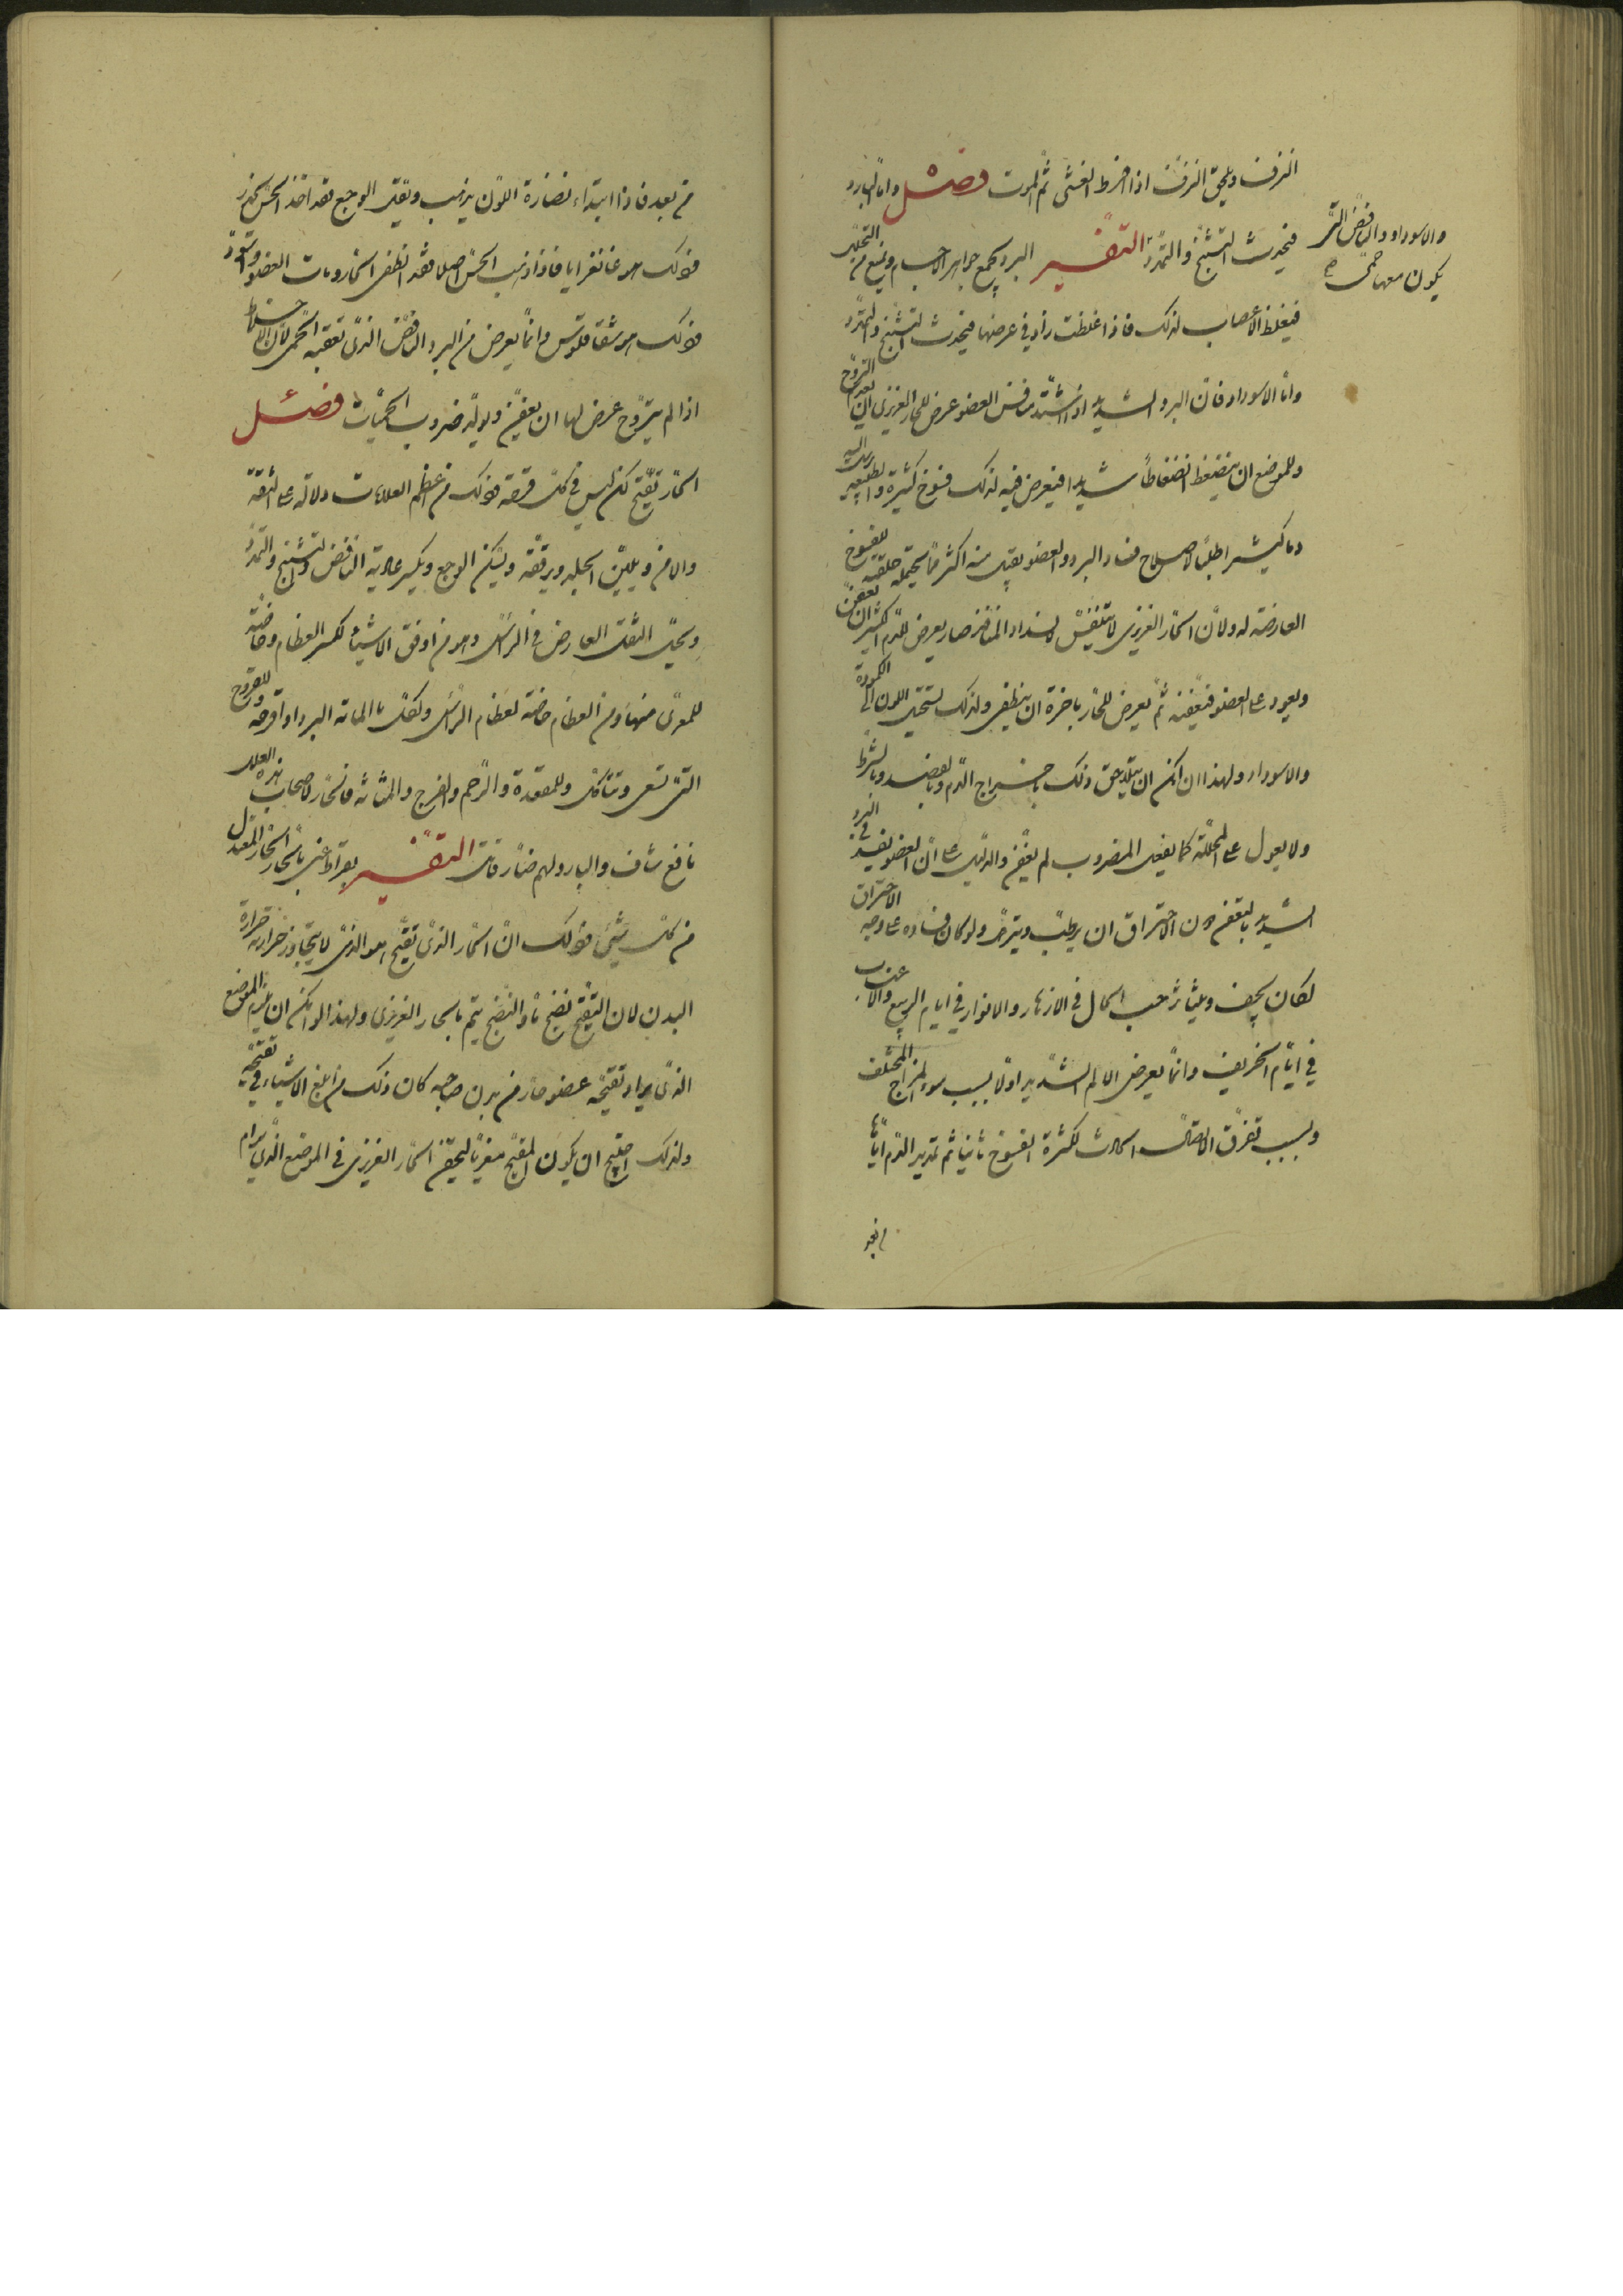 النزف ويلحق النزف اذا افرط الغشى ثم الموت فصل واما البارد
فيحدث التشنج والتمدد
والاسوداد والنافض التى
يكون معها حمى
التفسير البرد يجمع جواهر الاجسام ويمنع من التحلل
فيغلظ الاعصاب لذلك فاذا غلظت زاد فى عرضها فيحدث التشنج والتمدد
واما الاسوداد فان البرد الشديد اذا اشتد مس العضو عرض للحار الغريزى ان يعدم التروح
وللموضع ان ينضغط انضغاطا شديدا فيعرض فيه لذلك فسوخ كثيرة والطبيعة يرسل اليه
دما كثيرا طلبا لاصلاح فساد البرد والعضو يقبل منه اكثر مما يحتمله خلقته للفسوخ
العارضة له ولان الحار الغريزى لا يتنفس لانسداد المنافذ صار يعرض للدم الكثير ان يعفن
ويعود على العضو فيعفنه ثم يعرض للحار باخرة ان ينطفى ولذلك يستحيل اللون الى الكمودة
والاسوداد ولهذا ان امكن ان يتلاحق ذلك باخراج الدم وبالفصد وبالشرط
ولا يعول على المحللة كما يفعل المضروب لم يعفن والدليل على ان العضو يفسد فى البرد
الشديد بالتعفن دون الاحتراق ان يرطب ويترهل ولو كان فساده على وجه الاحتراق
لكان يجف ويتناثر حسب الحال فى الازهار والانوار فى ايام الربيع والاعناب
فى ايام الخريف وانما يعرض الالم الشديد اولا بسبب سوء المزاج المختلف
وبسبب تفرق الاتصال الحادث لكثرة الفسوخ ثانيا ثم تمديد الدم اياها
من بعد فاذا ابتداء نضارة اللون يذهب ويقل الوجع فقد اخذ الحس يخدر
فذلك هو غانغرايا فاذا ذهب الحس اصلا فقد انطفى الحار ومات العضو واسود
فذلك هو شفاقلوس وانما يعرض من البرد النافض الذى تعقبه الحمى لان الاخلاط
اذا لم يتروح عرض لها ان يعفن وتولد ضروب الحميات فصل
الحار تقيح لكن ليس فى كل قرحة فذلك من اعظم العلامات دلالة على الثقة
والامن ويلين الجلد ويرققه ويسكن الوجع ويكسر عادية النافض والتشنج والتمدد
ويحل الثقل العارض فى الراس وهو من اوفق الاشياء لكسر العظام وخاصة
للمعرى منها ومن العظام خاصة لعظام الراس ولكل ما اماته البرد او اقرحه وللقروح
التى تسعى وتتاكل وللمقعدة والرحم والفرج والمثانة فالحار لاصحاب هذه العلل
نافع شاف والبارد لهم ضار قاتل التفسير بقراط عنى بالحار الحار المعتدل
من كل شيئ فذلك ان الحار الذى تقيح هو الذى لا يتجاوز حرارته حرارة
البدن لان التقيح نضج ما والنضج يتم بالحار الغريزى ولهذا لو امكن ان يلزم الموضع
الذى يراد تقيحه عضو حار من بدن صاحبه كان ذلك من ابلغ الاشياء فى تقيحه
ولذلك احتيج ان يكون المقيح مغريا ليحقن الحار الغريزى فى الموضع الذى يرام